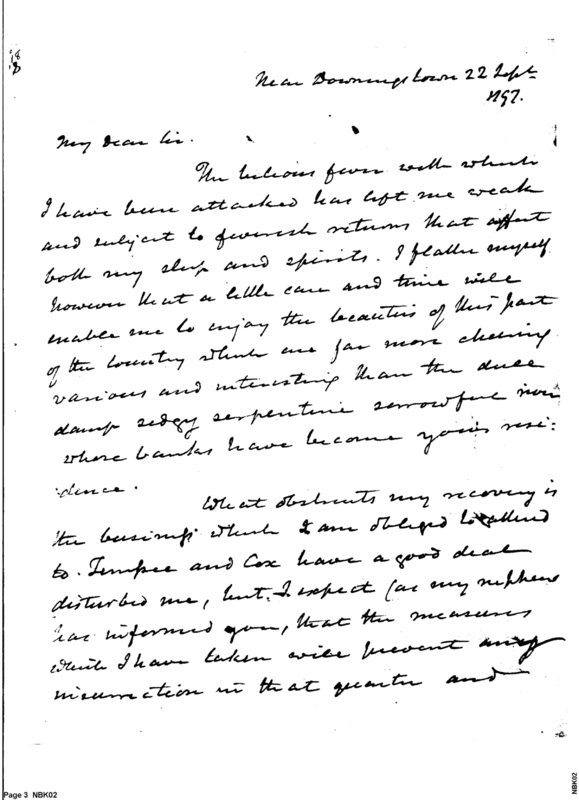 18
8
Near Downingstown 22 Sept
1797.
My dear Sir.
The bilious fever with which
I have been attacked has left me weak
and subject to feverish returns that affect
both my sleep and spirits. I flatter myself
however that a little care and time will
enable me to enjoy the beauties of this part
of the Country which are far more cheering
various and interesting than the dull
damp sedgy serpentine sorrowful river
whose banks have become your resi:
:dence.
What obstructs my recovery is
the business which I am obliged to attend
to. and Cox have a good deal
disturbed me, but I expect (as my nephew
has informed you, that the measures
which I have taken will prevent any
insurrection in that quarter and
Page 3 NBK02
NBK02